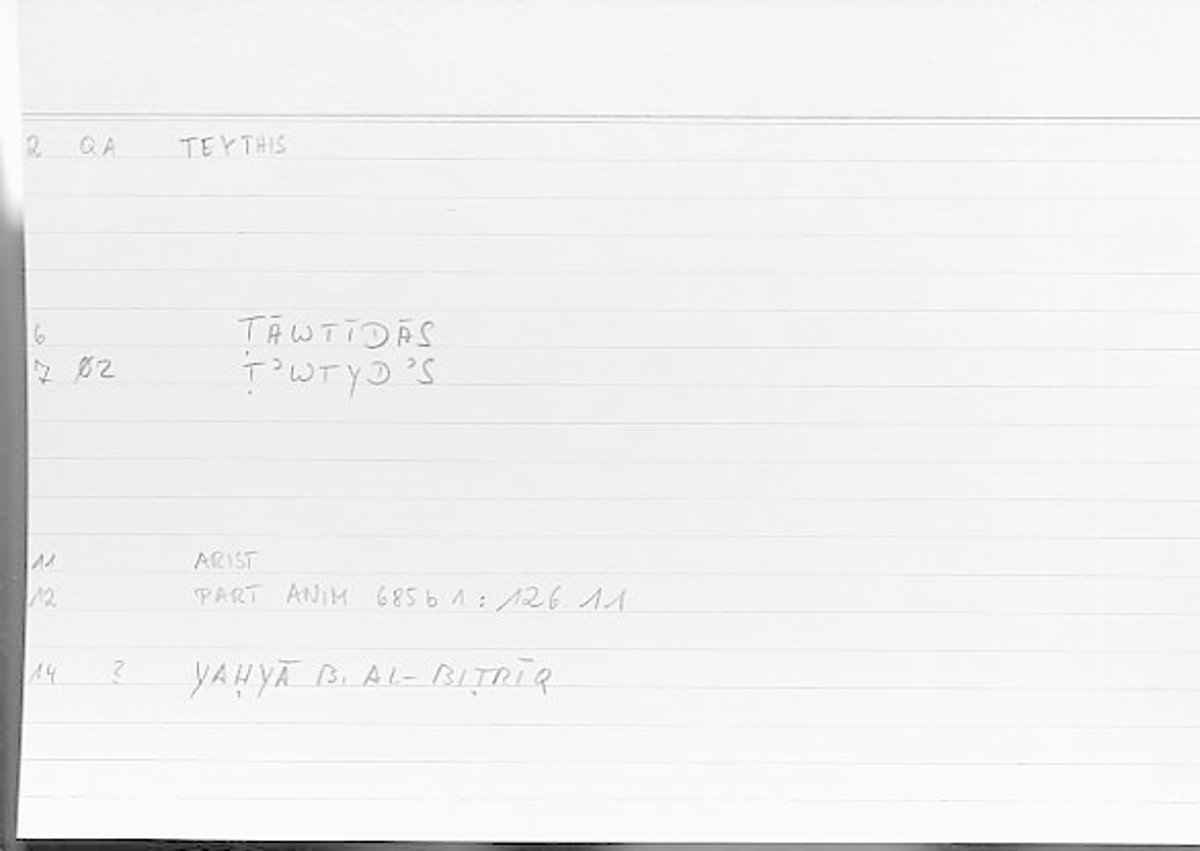 2 QA TEYTHIS
6 ṬĀWTĪDĀS
7 Ø2 Ṭʾ WTYDʾS
11 ARIST
12 PART ANIM 685 b 1 : 126 11
14 ? YAḤYĀ B. AL-BIṬRĪQ